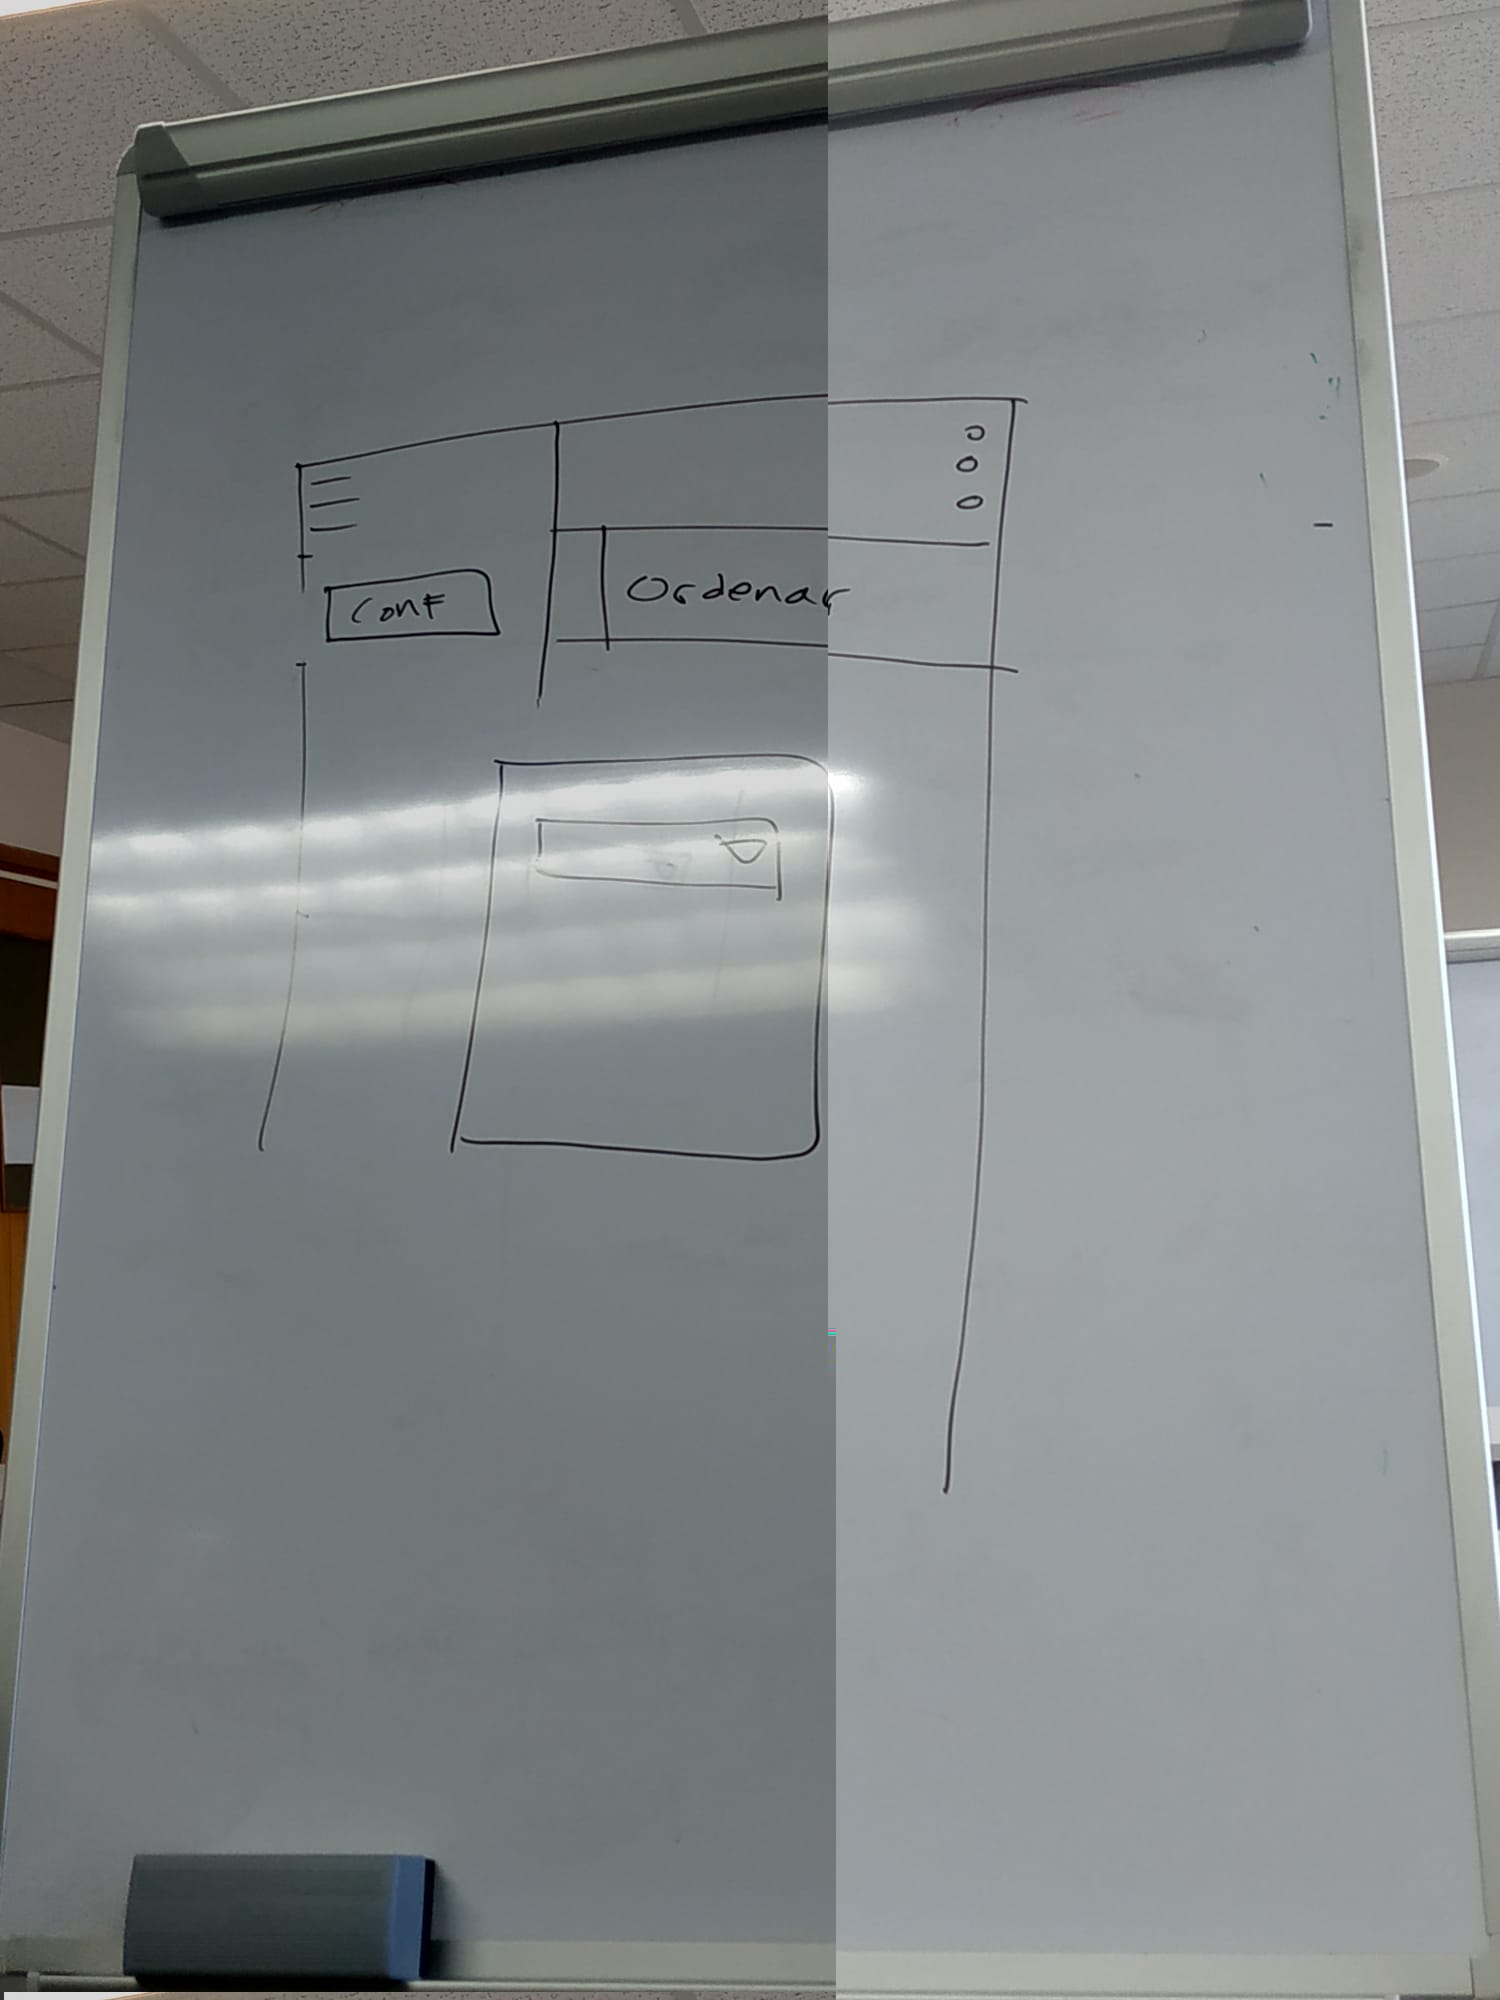 Conf
Ordenar